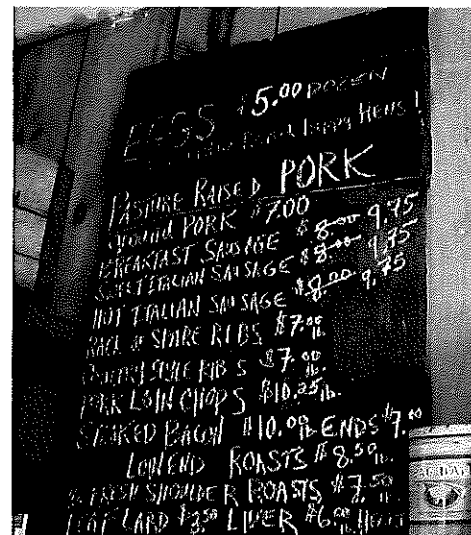 EGGS $5.00 DOZEN
HAPPY HENS!
PASTURE RAISED PORK
GROUND PORK $7.00
BREAKFAST SAUSAGE $8.00 9.75
SWEET ITALIAN SAUSAGE $8.00 9.75
HOT ITALIAN SAUSAGE $8.00 9.75
RACK OF SPARE RIBS $7.00 lb.
COUNTRY STYLE RIBS $7.00 lb.
PORK LOIN CHOPS $10.25 lb.
SMOKED BACON $10.00 lb. ENDS $7.00
LOIN END ROASTS $8.50 lb.
FRESH SHOULDER ROASTS $7.50 lb.
LEAF LARD $3.50 LIVER $6.00 lb.